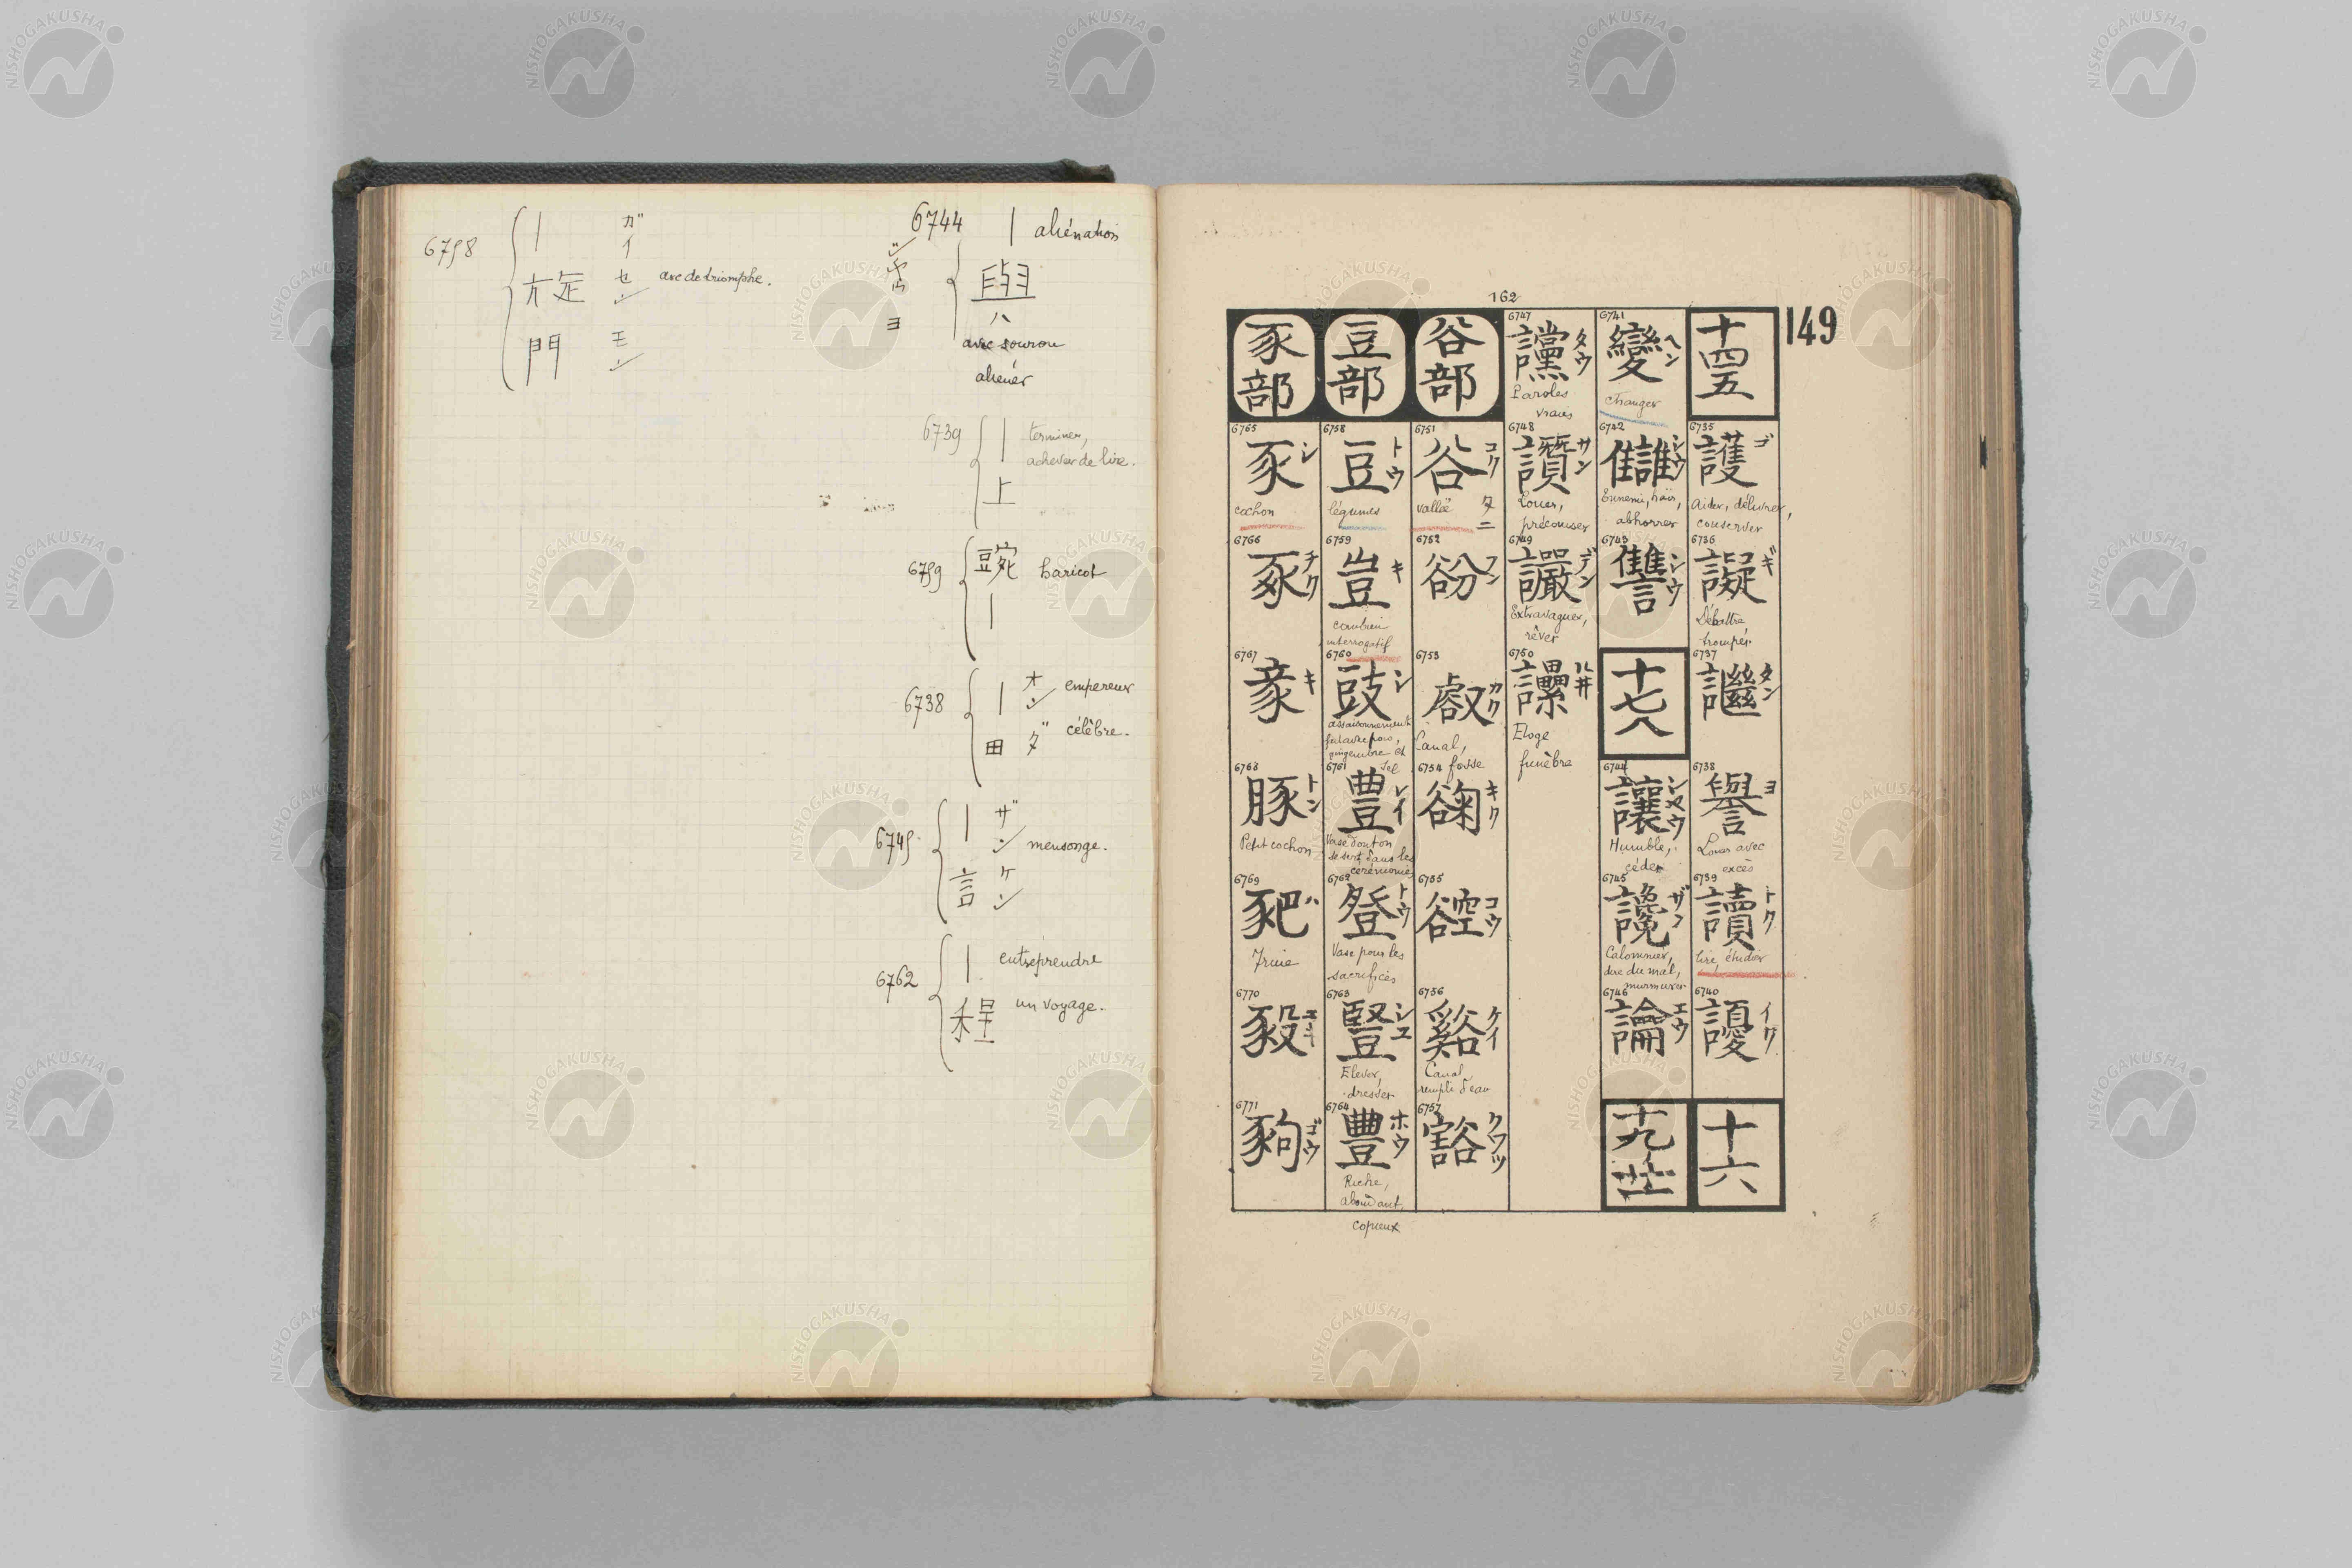 6758
|
ガイ
セン
旋
avec de triomphe.
門
モン
6744
| aliénation
ジヤウ
與
ヨ
ハ
avec sourou
aliéner
6739
| terminer,
achever de lire.
上
6759
豌 haricot
|
6738
| オン empereur
田 ダ célèbre.
6745
| ザン mensonge.
言 ケン
6762
| entreprendre
程 un voyage.
162
149
十四五
6735
護 ゴ
Aider, délivrer,
conserver
6736
譺 ギ
Débattre,
tromper
6737
タン
6738
譽 ヨ
Louer avec
excès
6739
讀 トク
Lire, étudier
6740
イウ
十六
6741
變 ヘン
changer
6742
讎 シウ
Ennemi, haïr,
abhorrer
6743
讐 シウ
十七八
6744
讓 シヤウ
Humble,
céder
6745
讒 ザン
Calomnier,
dire du mal,
murmurer
6746
エウ
十九廿
6747
讜 タウ
Paroles
vraies
6748
讚 サン
Louer,
préconiser
6749
讝 デン
Extravaguer,
rêver
6750
讄 ルヰ
Eloge
funèbre
谷部
6751
谷 コク
vallée タニ
6752
フン
6753
叡 カク
Canal,
fosse
6754
キク
6755
谾 コウ
6756
谿 ケイ
Canal
rempli d'eau
6757
豁 クワツ
豆部
6758
豆 トウ
légumes
6759
豈 キ
combien
interrogatif
6760
豉 シ
assaisonnement
fait avec pois,
gingembre et
sel
6761
豊 レイ
Vase dont on
se sert dans les
cérémonies
6762
登 トウ
Vase pour les
sacrifices
6763
豎 シユ
Elever,
dresser
6764
豐 ホウ
Riche,
abondant,
copieux
豕部
6765
豕 シ
cochon
6766
豖 チク
6767
キ
6768
豚 トン
Petit cochon
6769
豝 ハ
Truie
6770
豛 エキ
6771
豞 ゴウ